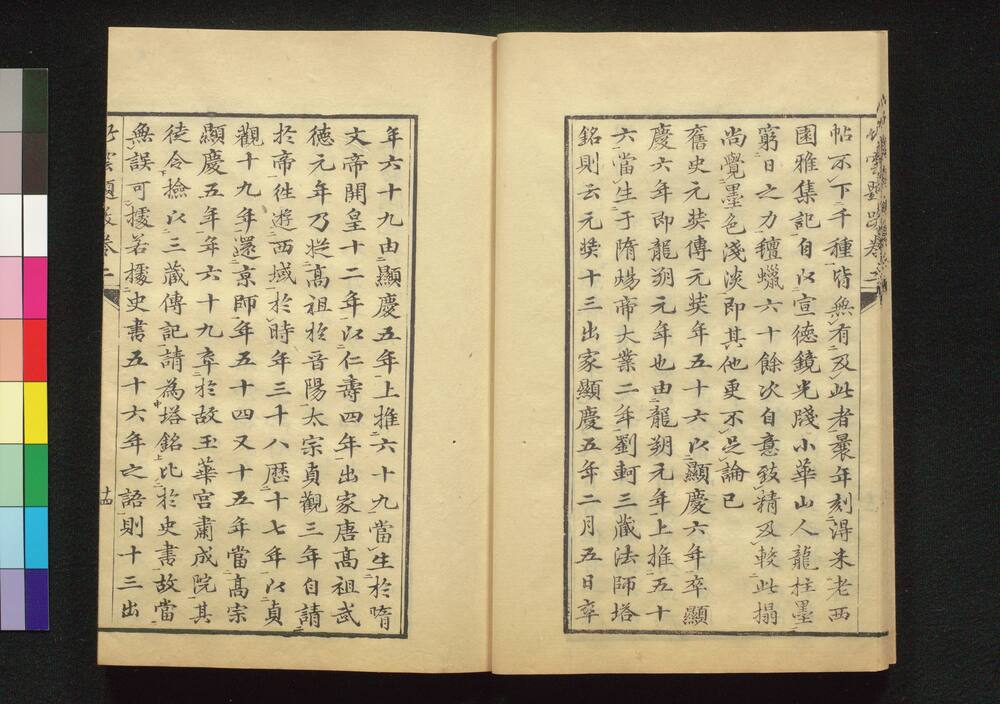 帖不下千種皆無有及此者曩年刻得米老西
園雅集記自以宣德鏡光牋小華山人龍柱墨
窮日之力氊蠟六十餘次自意致精及較此搨
尚覺墨色淺淡即其他更不足論已
舊史元奘傳元奘年五十六以顯慶六年卒顯
慶六年即龍朔元年也由龍朔元年上推五十
六當生于隋煬帝大業二年劉軻三藏法師塔
銘則云元奘十三出家顯慶五年二月五日卒
年六十九由顯慶五年上推六十九當生於隋
文帝開皇十二年以仁壽四年出家唐高祖武
德元年乃従高祖於晉陽太宗貞觀三年自請
於帝徃遊西域於時年三十八歴十七年以貞
觀十九年還京師年五十四又十五年當高宗
顯慶五年年六十九卒於故玉華宮肅成院其
徒令撿以三藏傳記請為塔銘比於史書故當
無誤可據若據史書五十六年之語則十三出
題跋卷二